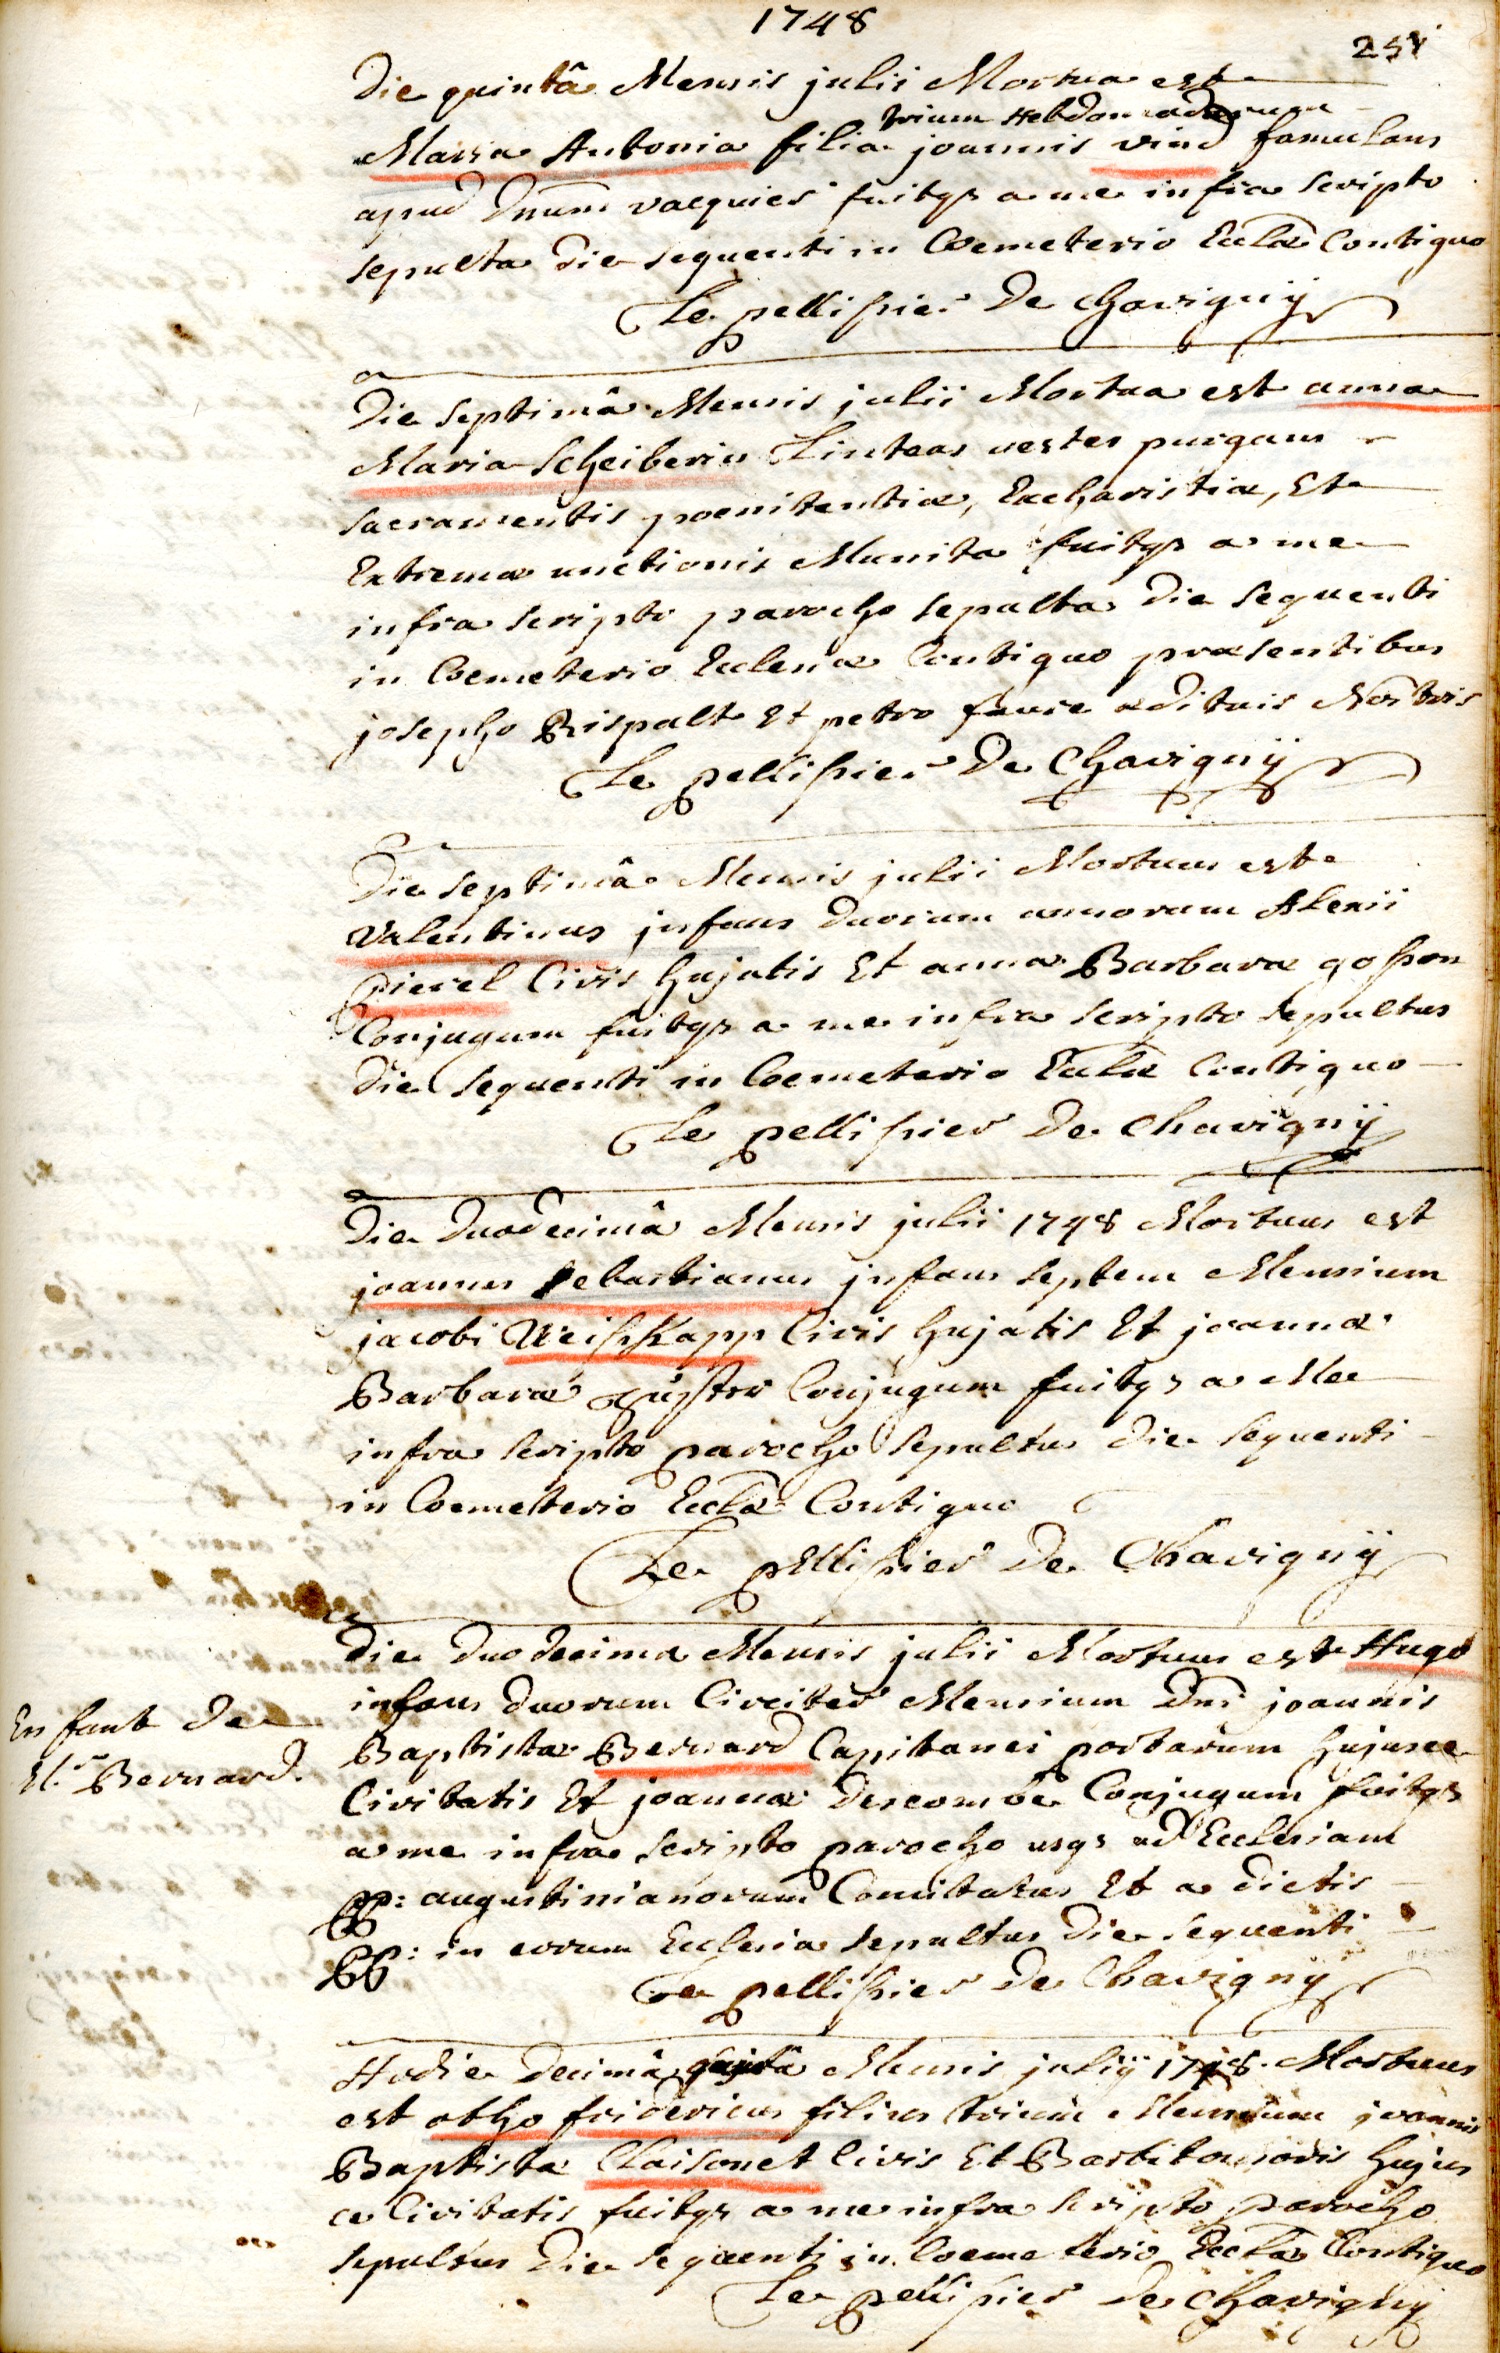 1748
251
Die quintâ Mensis julii Mortua est
trium Hebdomadarum
Maria Antonia filia joannis vind famulans
apud Dnum vacquier fuitqs a me infra scripto
sepulta die sequenti in Coemeterio Eccłæ Contiguo
Le pellissier De Chavignÿ
Die septimâ Mensis julii Mortua est anna
Maria Scheiberin Linteas vestes purgans
sacramentis poenitentiæ, Eucharistiæ, Et
Extremæ unctionis Munita fuitqs a me
infra scripto parocho sepulta die sequenti
in Coemeterio Ecclesiæ Contiguo præsentibus
josepho Rispalt Et petro faure ædituis Nostris
Le pellissier De Chavignÿ
Die septimâ Mensis julii Mortuus est
Valentinus infans duorum annorum Alexii
Pierel Civis hujatis Et annæ Barbaræ gosson
Conjugum fuitqs a me infra scripto sepultus
die sequenti in Coemeterio Eccłæ Contiguo
Le pellissier De Chavignÿ
Die Duodecimâ Mensis julii 1748 Mortuus est
joannes sebastianus infans septem Mensium
jacobi Weisskapp Civis hujatis Et joannæ
Barbaræ Conjugum fuitqs a Me
infra scripto parocho sepultus die sequenti
in Coemeterio Eccłæ Contiguo
Le pellissier De Chavignÿ
Die Duodecima Mensis julii Mortuus est Hugo
infans duorum Circiter Mensium Dni joannis
Enfant de
Baptistæ Bernard Capitanei portarum hujusce
Mr Bernard.
Civitatis Et joannæ Descombe Conjugum fuitqs
a me infra scripto parocho usqs ad Ecclesiam
pp: augustinianorum Comitatus Et a dictis
pp: in eorum Ecclesia sepultus die sequenti
Le pellissier De Chavignÿ
Hodie Decimâ Mensis julÿ 1748. Mortuus
est otho fridericus filius trium Mensium joannis
Baptistæ Claisonet Civis Et Barbitonsoris hujus
ce Civitatis fuitqs a me infra scripto parocho
sepultus Die sequenti in Coemeterio Eccłæ Contiguo
Le pellissier De Chavignÿ